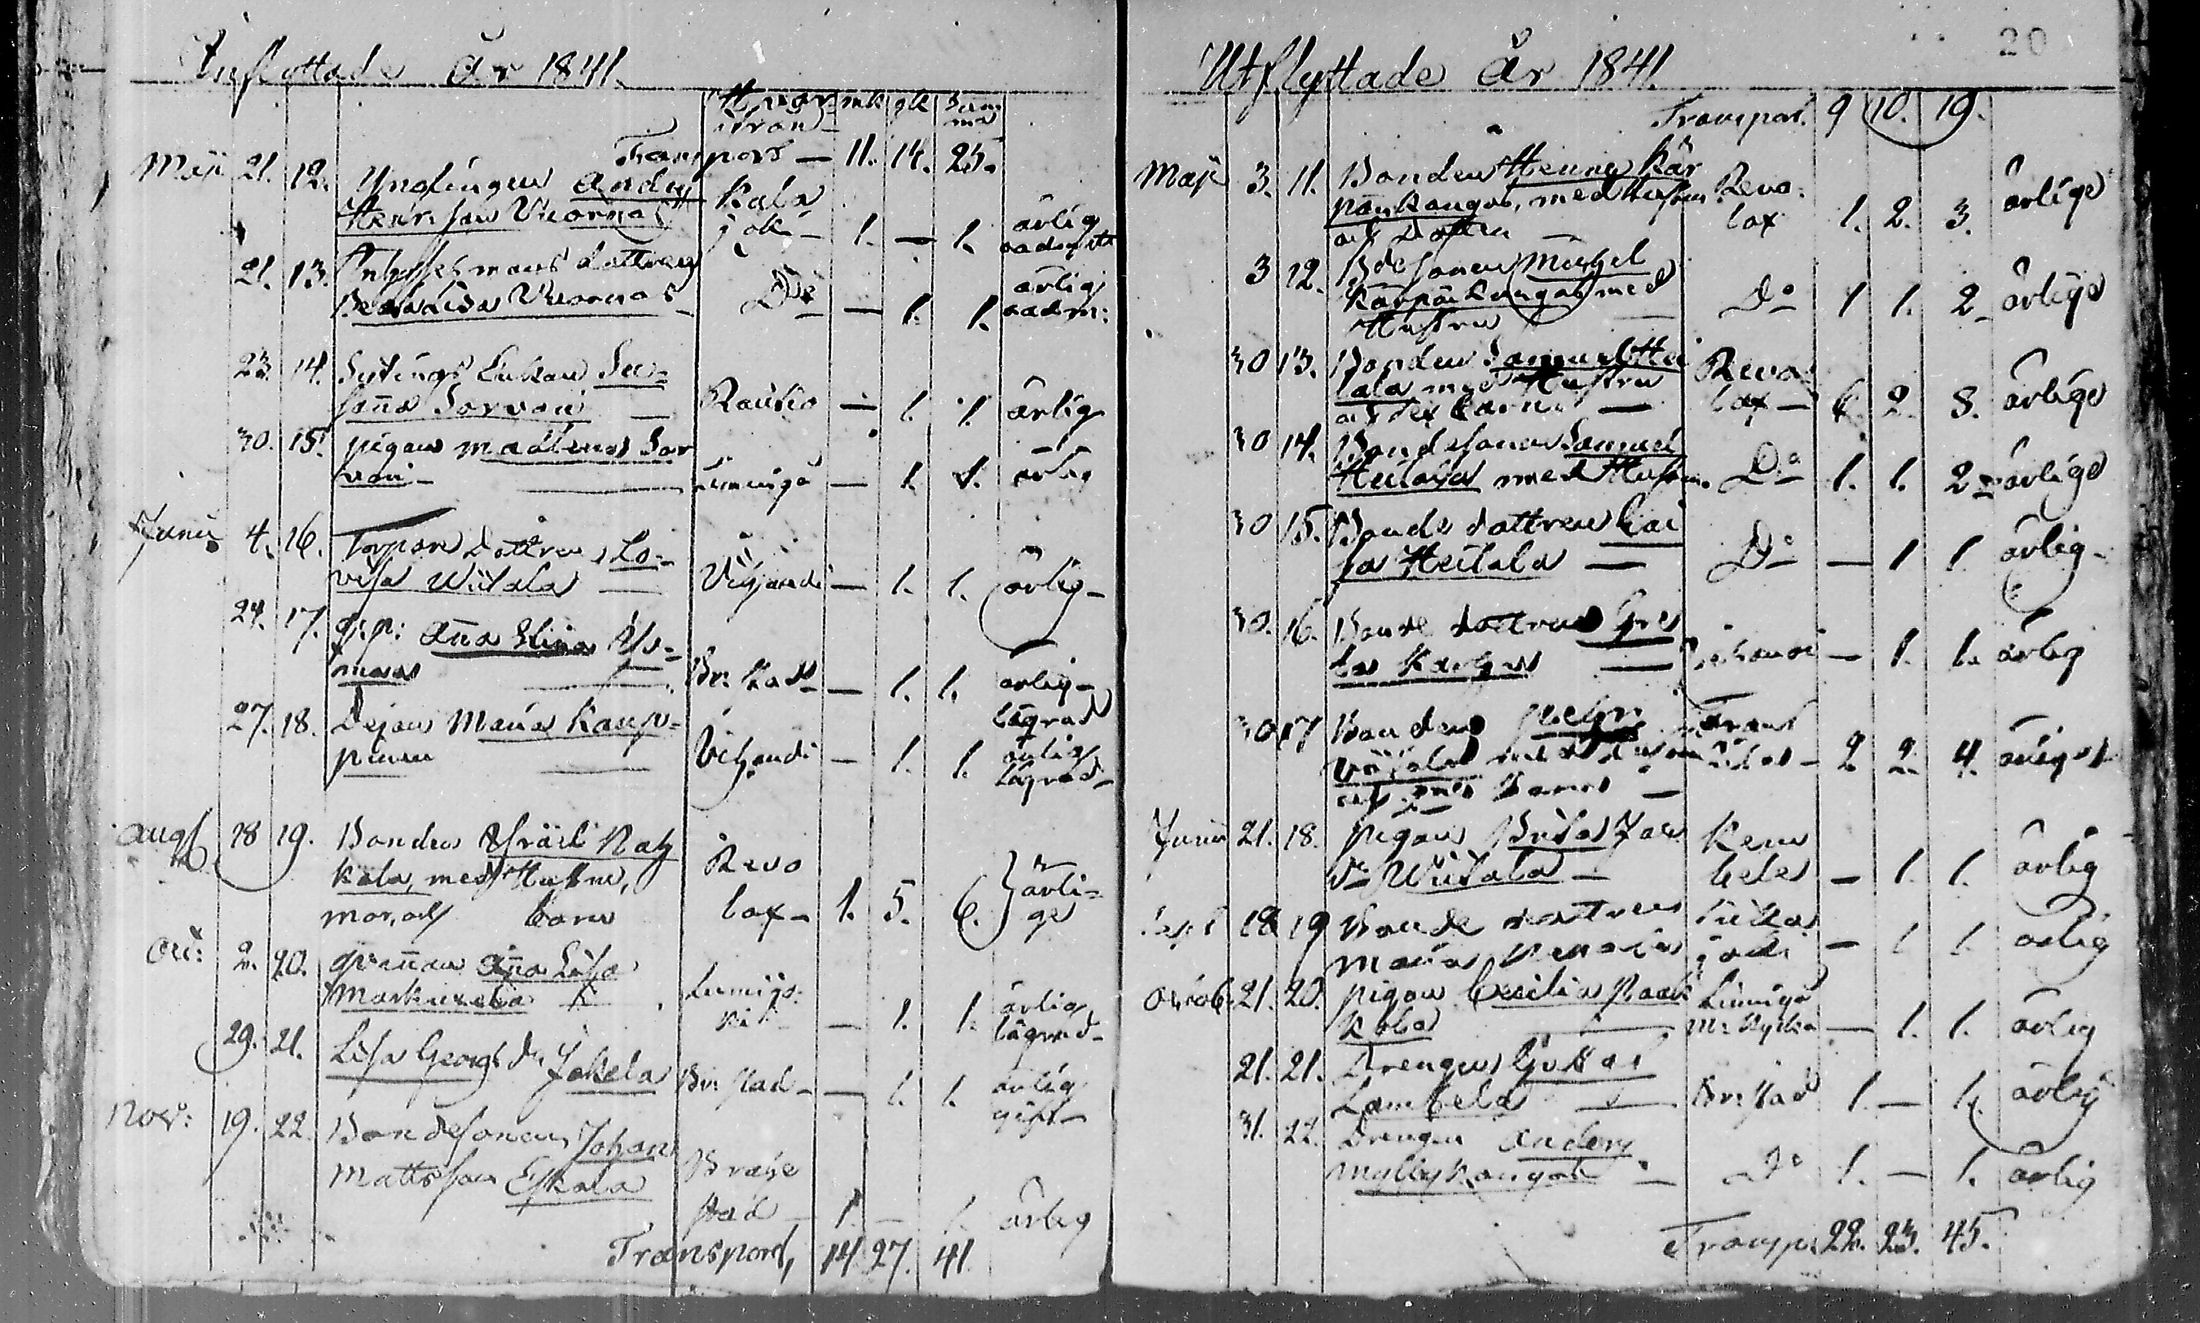 Inflyttade År 1841.
Hvar ifrån mk qk Summa
Transport — 11. 14. 25.
Maji 21. 12. Ynglingen Anders Kala
Henr. Son Vuornos joki — 1. — 1. ärlig
21. 13. dottren
Beata Lisa Vuornos Do — 1. 1. ärlig
23. 14. Sytings Enkan Su=
sanna Sorvari — Rautio — 1. 1. ärlig
30. 15. pigan Madlena Sor
vari — Limingo — 1. 1. ärlig
Junii 4. 16. Torpare Dottren Lo=
visa Wiitala — Vihandi — 1. 1. ärlig —
24. 17. Anna Elina
Br: stad — 1. 1. ärlig —
27. 18. Dejan Maria Kaup=
pinen — Vihandi — 1. 1. ärlig
Aug 18 19. Bonden Israël
kola, med Hustru, Revo
mor, och barn lax — 1. 5. 6. ärli=
ge
Oct: 2. 20. qvinnan Anna Lisa
Markuxela Lumijo=
ki — 1. 1. ärlig
29. 21. Lisa Georgs dr Jokela Br: stad — 1. 1. ärlig
gift —
Nov: 19. 22. Bondesonen Johan
Mattsson Eskola Brahe
stad — 1. — 1. ärlig
Transport, 14 27. 41.
20
Utflyttade År 1841.
Transport. 9 10. 19.
Maji 3. 11. Bonden Henric Kär
pänkangas, med Hustru Revo=
och Dotter — lax 1. 2. 3. ärlige
3 12. Bdesonen Michel
Kärpänkangas med
Hustru — Do 1 1. 2 — ärlige
30 13. Bonden Samuel Hei
tala med Hustru Revo
och sex barn — lax — 6 2. 8. ärlige
30 14. Bondesonen Samuel
Heitala med Hustru. Do 1. 1. 2 — ärlige
30 15. Bonde dottren Cai
sa Heitala — Do — 1 1 ärlig —
30. 16. Bonde dottren Gre
ta Kangas — — 1. 1. ärlig
30 17 Bonden Petri Frant
med Hustru
och barn — sila — 2 2. 4. ärliga
Junii 21. 18. pigan Brita Jac Kem
Dr Wiitala — pele — 1. 1. ärlig
Sept 18 19 Bonde dottren Siika
Maria joki — 1 1. ärlig
Octob 21. 20. pigan Cecilia Raati Limingo
kola — M: kyrka — 1. 1. ärlig
21. 21. Drengen Lukas
Lambela — Br: stad 1. — 1. ärlig
31. 22. Drengen Anders
Myllykangas — Do 1. — 1. ärlig
Transp: 22. 23. 45.